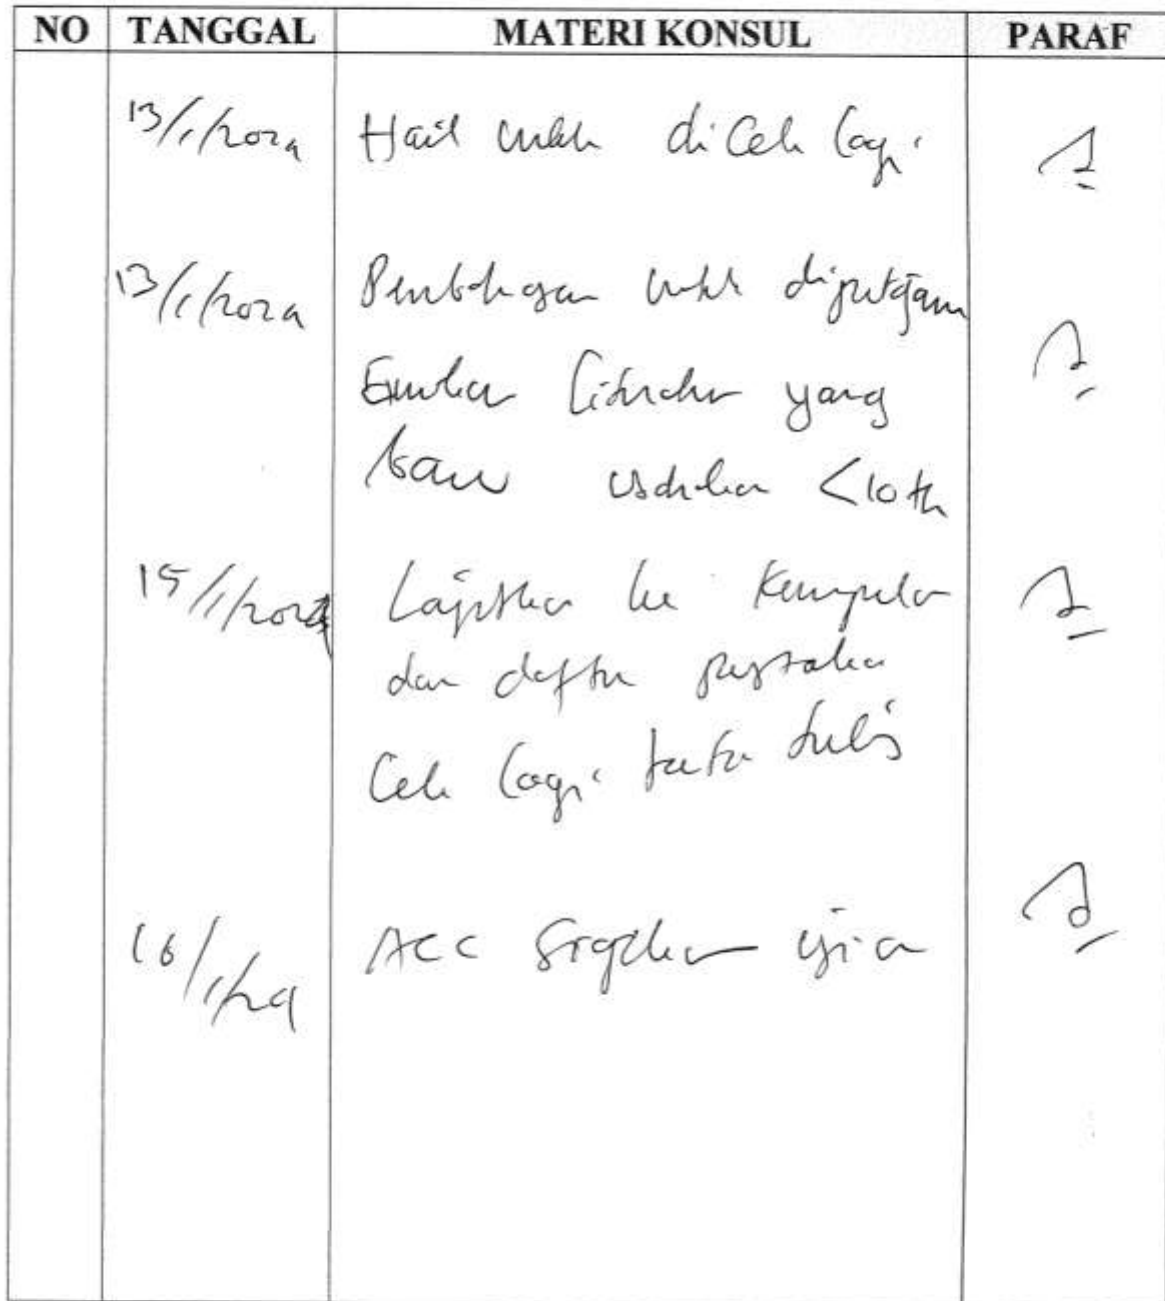 NO TANGGAL MATERI KONSUL PARAF
13/1/2024 Hasil untuk di Cek lagi
13/1/2024 Pembahasan untuk dipertajam
literatur yang
baru usahakan <10 th
15/1/2024 Lanjutkan ke Kesimpulan
dan daftar pustaka
Cek lagi tata tulis
16/1/24 ACC Siapkan ujian